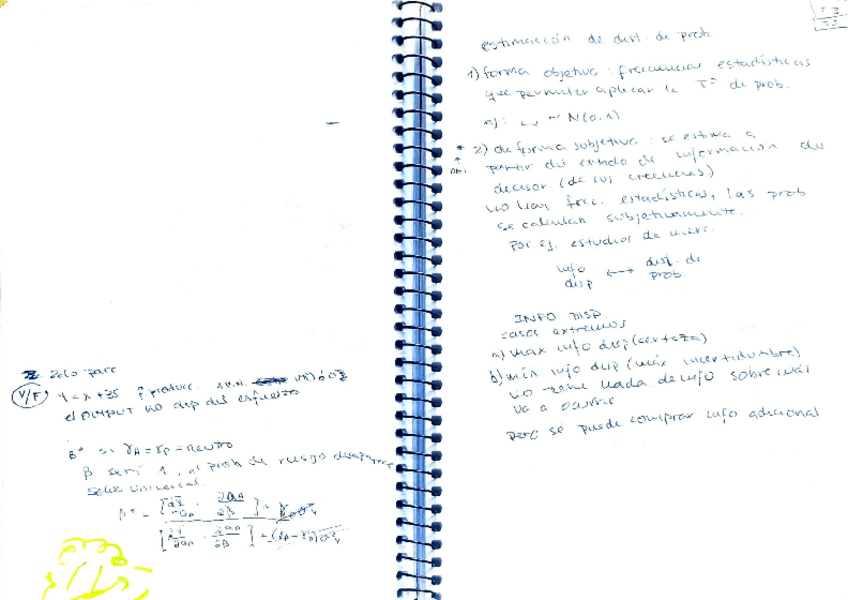 2º parc
V/F y = x + 35 f. product.
el output no dep del esfuerzo
β* si γA = γP = neutro
β será 1, el prob de riesgo desaparece
soluc universal.
β* =
T 3
estimación de dist. de prob
1) forma objetiva: frecuencias estadísticas
que permiten aplicar la Tª de prob.
ej: ~ N(0,1)
* 2) de forma subjetiva: se estima a
partir del estado de información del
decisor (de sus creencias)
no hay frec. estadísticas, las prob
se calculan subjetivamente.
por ej. estudios de merc.
info ↔ dist. de
disp prob.
INFO DISP.
casos extremos
a) máx info disp (certeza)
b) mín info disp (máx incertidumbre)
no tiene nada de info sobre cuál
va a ocurrir
pero se puede comprar info adicional